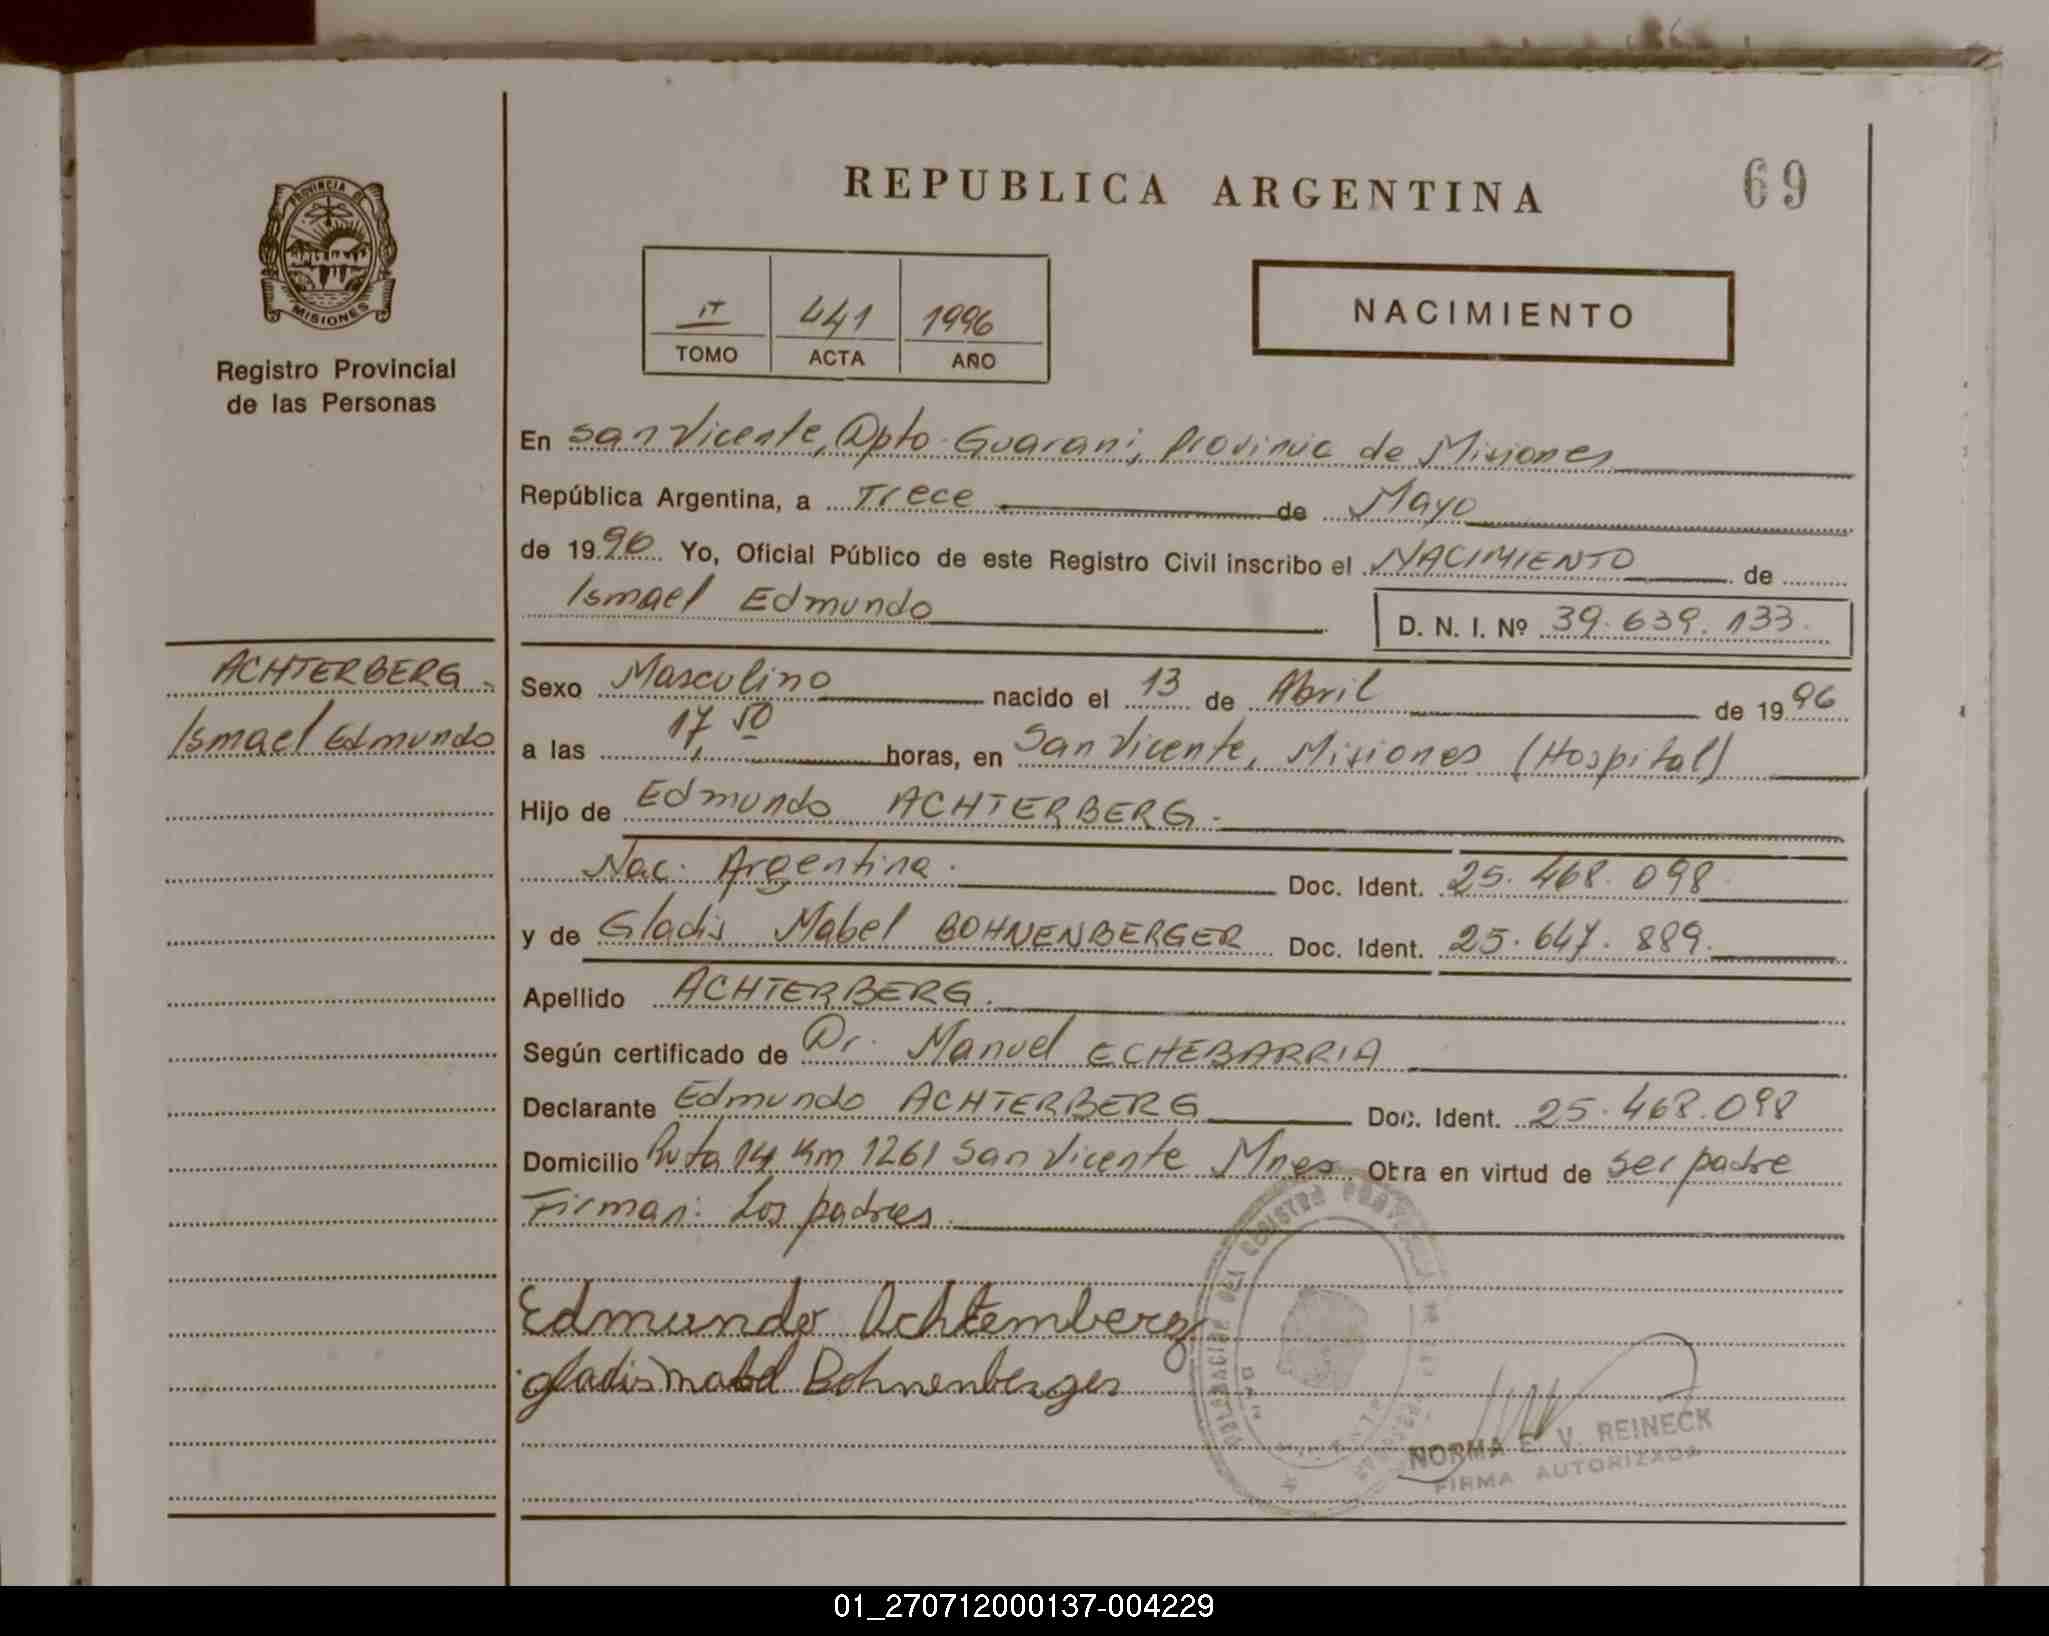 REPUBLICA ARGENTINA
69
PROVINCIA DE
MISIONES
Registro Provincial
de las Personas
II 441 1996
TOMO ACTA AÑO
NACIMIENTO
En San Vicente, Dpto. Guarani, Provinvic de Misiones
República Argentina, a Trece de Mayo
de 1996 Yo, Oficial Público de este Registro Civil inscribo el NACIMIENTO de
Ismael Edmundo
D. N. I. Nº 39.639.133.
ACHTERBERG
Ismael Edmundo
Sexo Masculino nacido el 13 de Abril de 1996
a las 17,50 horas, en San Vicente, Misiones (Hospital)
Hijo de Edmundo ACHTERBERG.
Nac. Argentina. Doc. Ident. 25.468.098
y de Gladis Mabel BOHNENBERGER Doc. Ident. 25.647.889.
Apellido ACHTERBERG.
Según certificado de Dr. Manuel ECHEBARRIA
Declarante Edmundo ACHTERBERG Doc. Ident. 25.468.098
Domicilio Ruta 14 Km 1261 San Vicente Mnes Otra en virtud de ser padre
Firman: Los padres.
Edmundo Achtemberg
gladis mabel Bohnenberger
NORMA E. V. REINECK
FIRMA AUTORIZADA
01_270712000137-004229